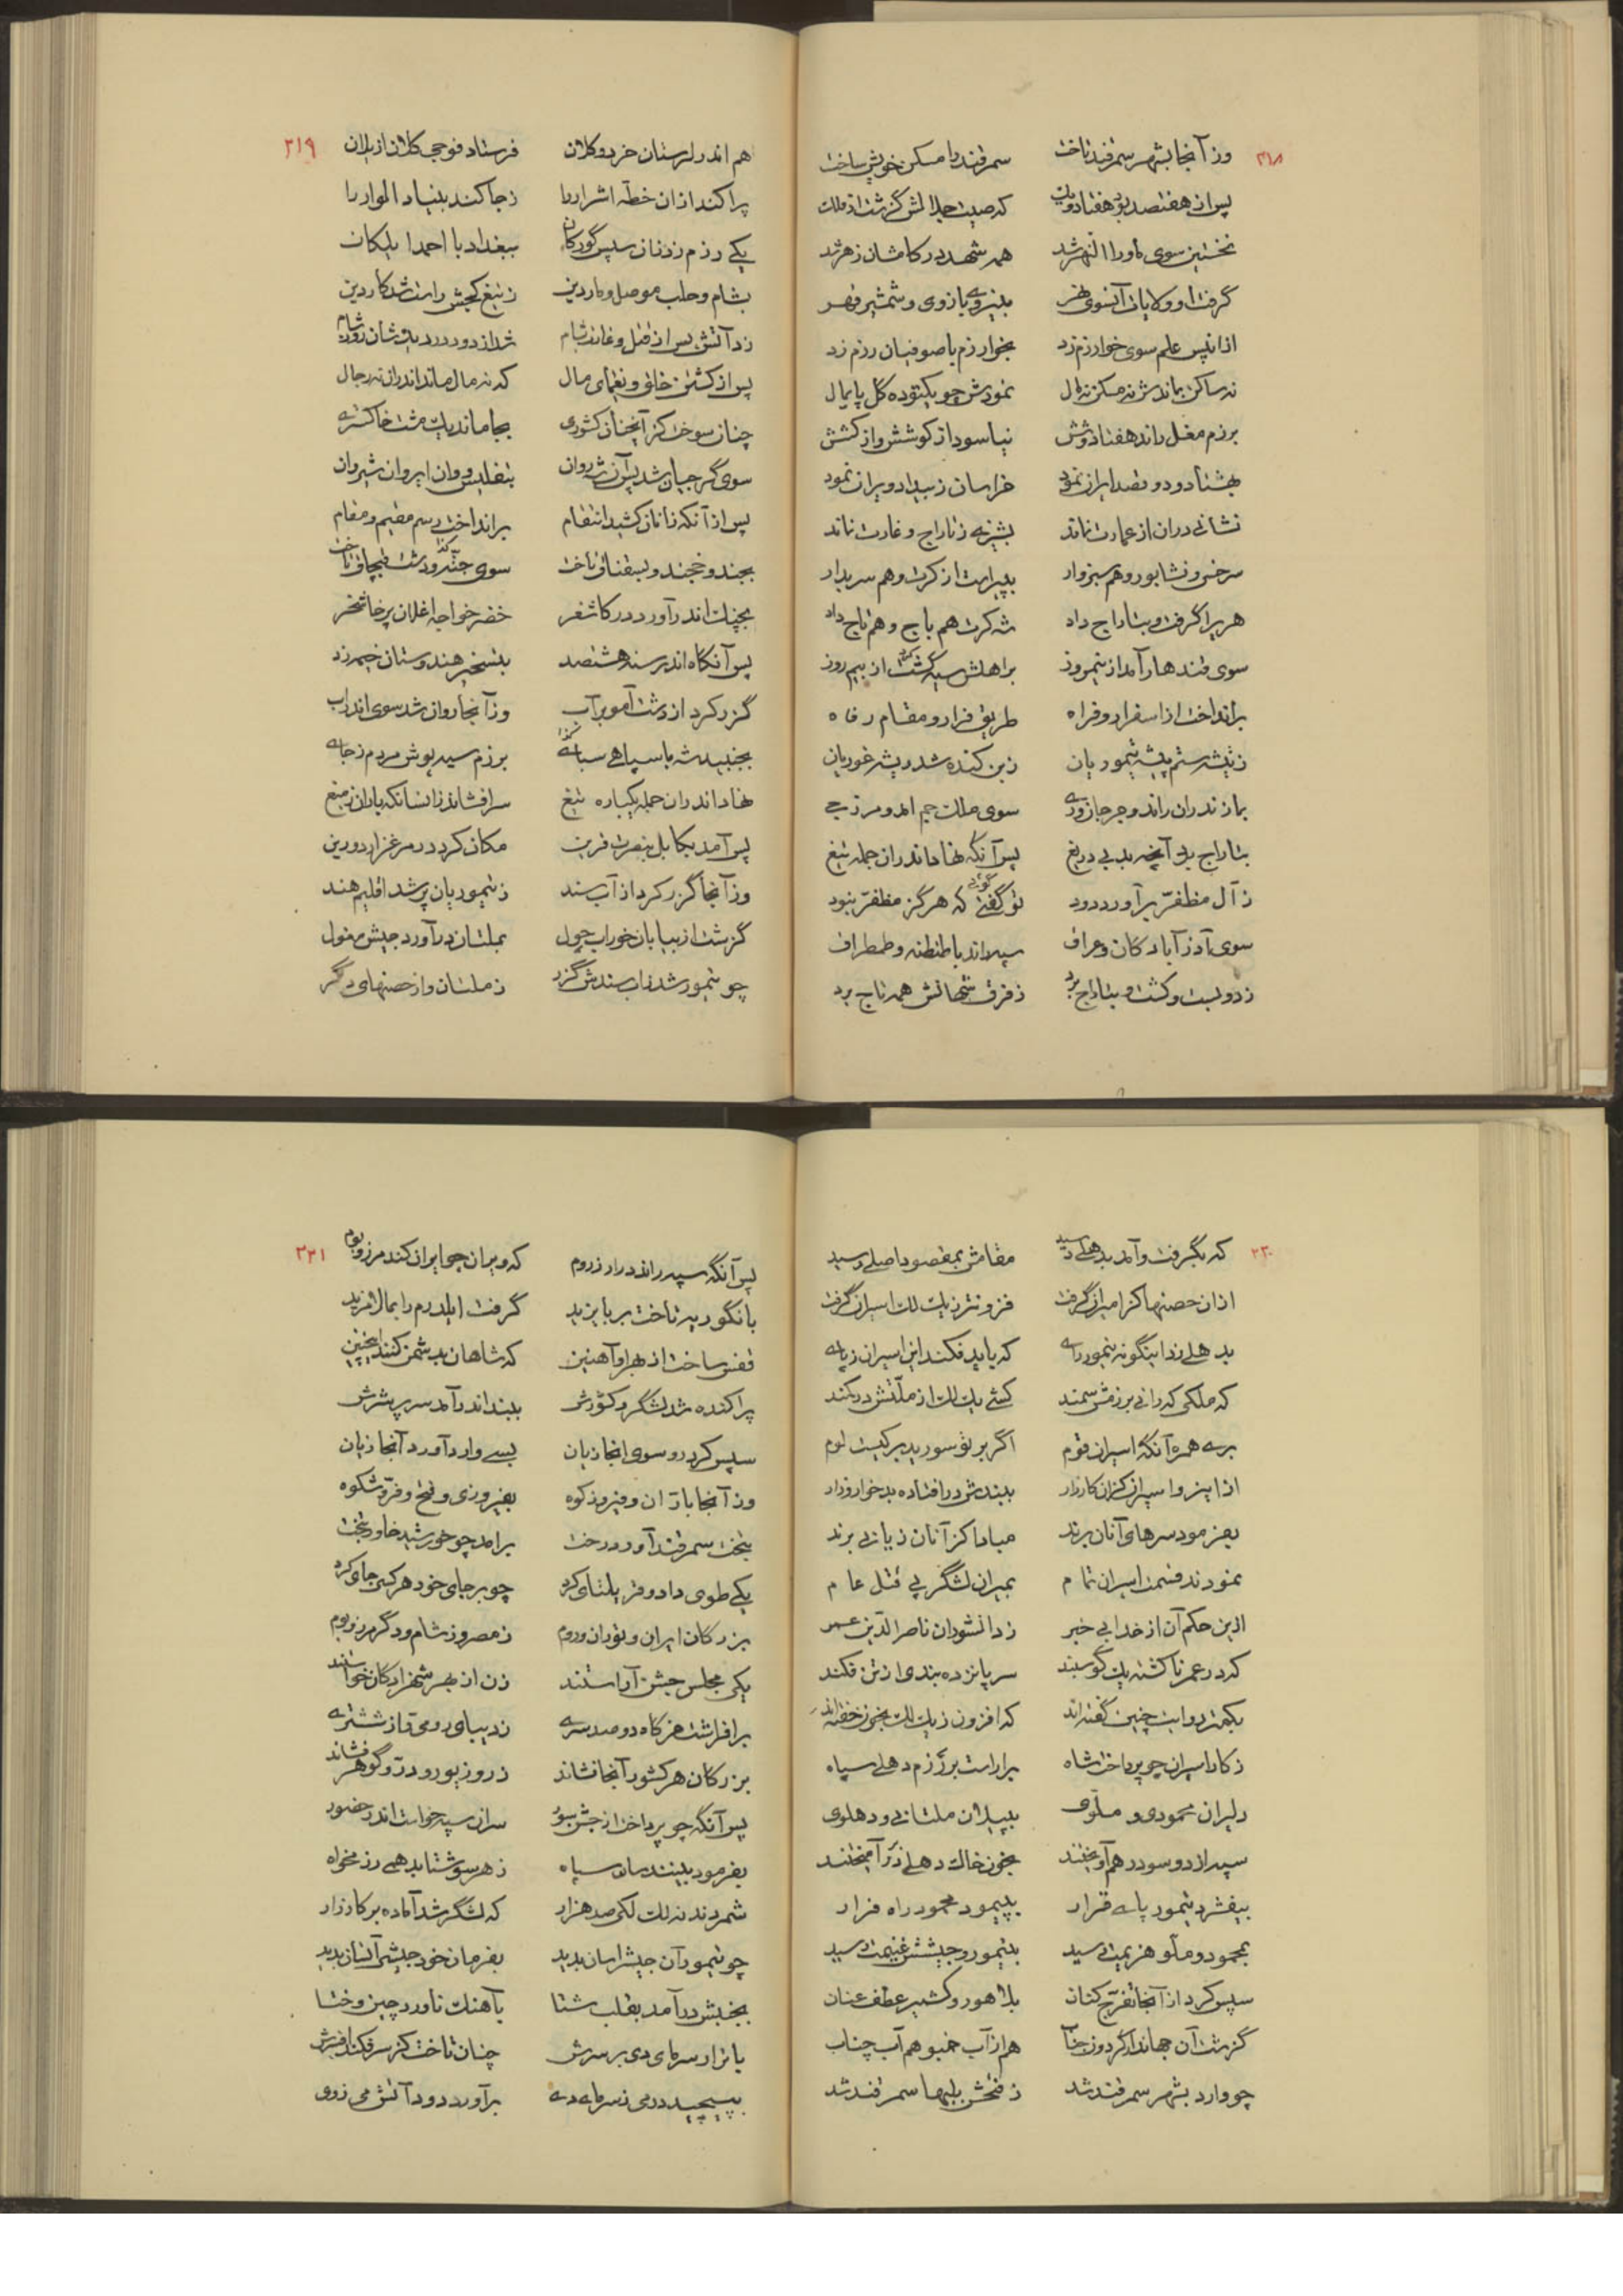 ۳۱۸
وز آنجا بشهر سمرقند تاخت سمرقند را مسکن خویش ساخت
پس از هفتصد بود هفتاد و یک که صیت جلالش گزشت از فلک
نخستین سوی ماوراالنهر شد همه شهد در کامشان زهر شد
گرفت او ولایات آنسوی نهر بنیروی بازوی و شمشیر قهر
از انپس علم سوی خوارزم زد بخوارزم با صوفیان رزم زد
نه ساکن بماندش نه مسکن نه مال نمودش چو یکتوده گل پایمال
برزم مغل راند هفتاد و شش نیاسود از کوشش و از کشش
بهشتاد و دو قصد ایران نمود خراسان ز بیداد ویران نمود
نشانی دران از عمارت نماند بشر نه ز تاراج و غارت نماند
سرخس و نشابور و هم سبزوار بپیراست از کرت و هم سربدار
هری را گرفت و بتاراج داد شه کرت هم باج و هم تاج داد
سوی قندهار آمد از نیمروز بر اهلش سیه گشت از بیم روز
برانداخت از اسفرار و فراه طریق فرار و مقام رفاه
ز تیشه ستم پیشه تیموریان ز بن کنده شد ریشه غوریان
بمازندران راند و جرجان و ری سوی ملک جم آمد و مرز جی
بتاراج برد آنچه بد بی دریغ پس آنگه نهاد اندران جمله تیغ
ز آل مظفّر برآورد دود تو گفتی که هرگز مظفّر نبود
سوی آذرآبادکان و عراق سپه راند با طنطنه و طمطراق
زد و بست و کشت و بتاراج برد ز فرق شهانش همه تاج برد
۳۱۹
هم اندر لرستان خرد و کلان فرستاد فوجی کلان از یلان
پراکند ازان خطّه اشرار را ز جا کند بنیاد الوار را
یکی رزم زد زان سپس گورکان ببغداد با احمد ایلکان
بشام و حلب موصل و ماردین ز تیغ کجش راست شد کار دین
زد آتش پس از قتل و غارت بشام شد از دود در دیده شان روز شام
پس از کشتن خلق و یغمای مال که نه مال ماند اندران نه رجال
چنان سوخت کز آنچنان کشوری بجا ماند یک مشت خاکستری
سوی گرجیان شد پس آن شه روان بتفلیس و وان ایروان شیروان
پس از آنکه زانان کشید انتقام برانداخت رسم مقیم و مقام
بجند و خجند و بسقناق تاخت سوی جته و دشت قبچاق تاخت
بچنگ اندر آورد در کاشغر خضر خواجه اغلان پرخاشخر
پس آنگاه اندر سنه هشتصد بتسخیر هندوستان خیمه زد
گزر کرد از دشت آمو بر آب وز آنجا روان شد سوی اندراب
بجنبید شه با سپاهی سپاه برزم سیه پوش مردم ز جای
نهاد اندران جمله یکباره تیغ سر افشاند زانسانکه باران ز میغ
پس آمد بکابل بنصرت قرین مکان کرد در مرغزار دورین
وز آنجا گزر کرد از آب سند ز تیموریان پر شد اقلیم هند
گزشت از بیابان خوراب چول بملتان درآورد جیش مغول
چو تیمور شد زاب سندش گزر ز ملتان و از حصنهای دگر
۳۲۰
که بگرفت و آمد بدهلی رسید مقامش بمقصود اصلی رسید
ازان حصنها کز امیران گرفت فزونتر ز یک لک اسیران گرفت
بدهلی زد اینگونه تیمور رای که باید فکند این اسیران ز پای
که ملکی که رانی برزمش سمند کسی یک لک از ملّتش در کمند
بری همره آنگه اسیران قوم اگر بر تو سورید بر کیست لوم
ازاینرو اسیران کزان کارزار ببندش درافتاده بد خوار و زار
بفرمود سرهای آنان برند مبادا کز آنان زیانی برند
نمودند قسمت اسیران تمام بمیران لشگر پی قتل عام
ازین حکم آن از خدا بی خبر ز دانشوران ناصر الدّین عمر
که در عمر ناکشته یک گوسپند سر پانزده بندی از تن فکند
بکمتر روایت چنین گفته اند که افزون ز یک لک بخون خفته اند
ز کار اسیران چو پرداخت شاه براراست بر رزم دهلی سپاه
دلیران محمودی و ملّوی بپیلان ملتانی و دهلوی
سپه از دو سو در هم آویختند بخون خاک دهلی درآمیختند
بیفشرد تیمور پای قرار بپیمود محمود راه فرار
بمحمود و ملّو هزیمت رسید بتیمور و جیشش غنیمت رسید
سپس کرد از آنجا تفرّج کنان بلاهور و کشمیر عطف عنان
گزشت آن جهاندار گردون جناب هم از آب جمبو هم آب چناب
چو وارد بشهر سمرقند شد ز فتحش بلبها سمر قند شد
۳۲۱
پس آنگه سپه راند در ارزروم که ویران چو ایران کند مرز و بوم
بانگوریه تاخت بر بایزید گرفت ایلدرم را بمال مزید
قفس ساخت از بهر او آهنین که شاهان بدشمن کنند اینچنین
پراکنده شد لشگر و کشورش ببند اندر آمد سر پر شرش
سپس کرد رو سوی ابخازیان بسی وارد آورد آنجا زیان
وز آنجا بارّان و فیروزکوه بفیروزی و فتح و فرّ و شکوه
بتخت سمرقند آورد رخت برامد چو خورشید خاور بتخت
یکی طوی داد و قریلتای کرد چو بر جای خود هر کسی جای کرد
بزرگان ایران و توران و روم ز مصر و ز شام و دگر مرز و بوم
یکی مجلس جشن آراستند زن از بهر شهزادگان خواستند
برافراشت خرگاه دو صد سری ز دیبای رومی و از ششتری
بزرگان هر کشور آنجا نشاند زر و زیور و درّ و گوهر فشاند
پس آنگه چو پرداخت از جشن سور سران سپه خواست اندر حضور
بفرمود بینند سان سپاه ز هر سو شتابد همی رزمخواه
شمردند نه لک لکی صد هزار که لشگر شد آماده بر کارزار
چو تیمور آن جیش را سان بدید بفرمان خود جیش آنسان بدید
بجنبش درآمد بقلب شتا بآهنگ ناورد چین و ختا
باترار سرمای دی بر سرش چنان تاخت کز سر فکند افسرش
بپیچید درهم ز سرمای دی برآورد دود آتش می ز وی